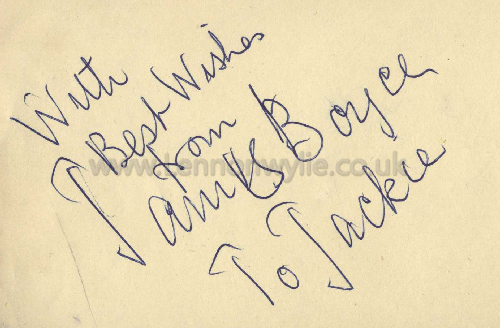 With
Best Wishes
from
James Boyce
To Jackie
www.lennonwylie.co.uk